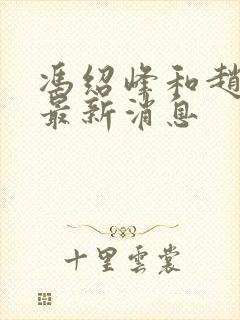 馮紹峰和趙
最新消息
十里雲裳